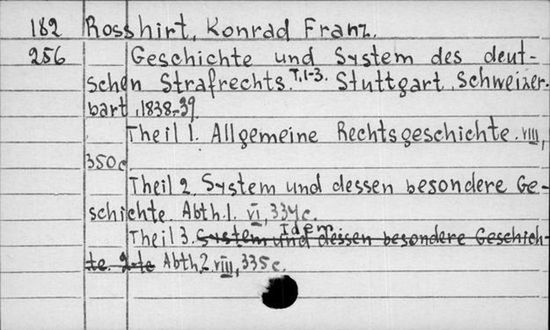 182 Rosshirt, Konrad Franz.
256 Geschichte und System des deut-
schen Strafrechts. T.1-3. Stuttgart, Schweizer-
bart, 1838-39.
Theil 1. Allgemeine Rechtsgeschichte. VIII,
350 c
Theil 2. System und dessen besondere Ge-
schichte. Abth. 1. VI, 334 c.
Idem
Theil 3. System und dessen besondere Geschich-
te. 2-te Abth. 2. VIII, 335 c.